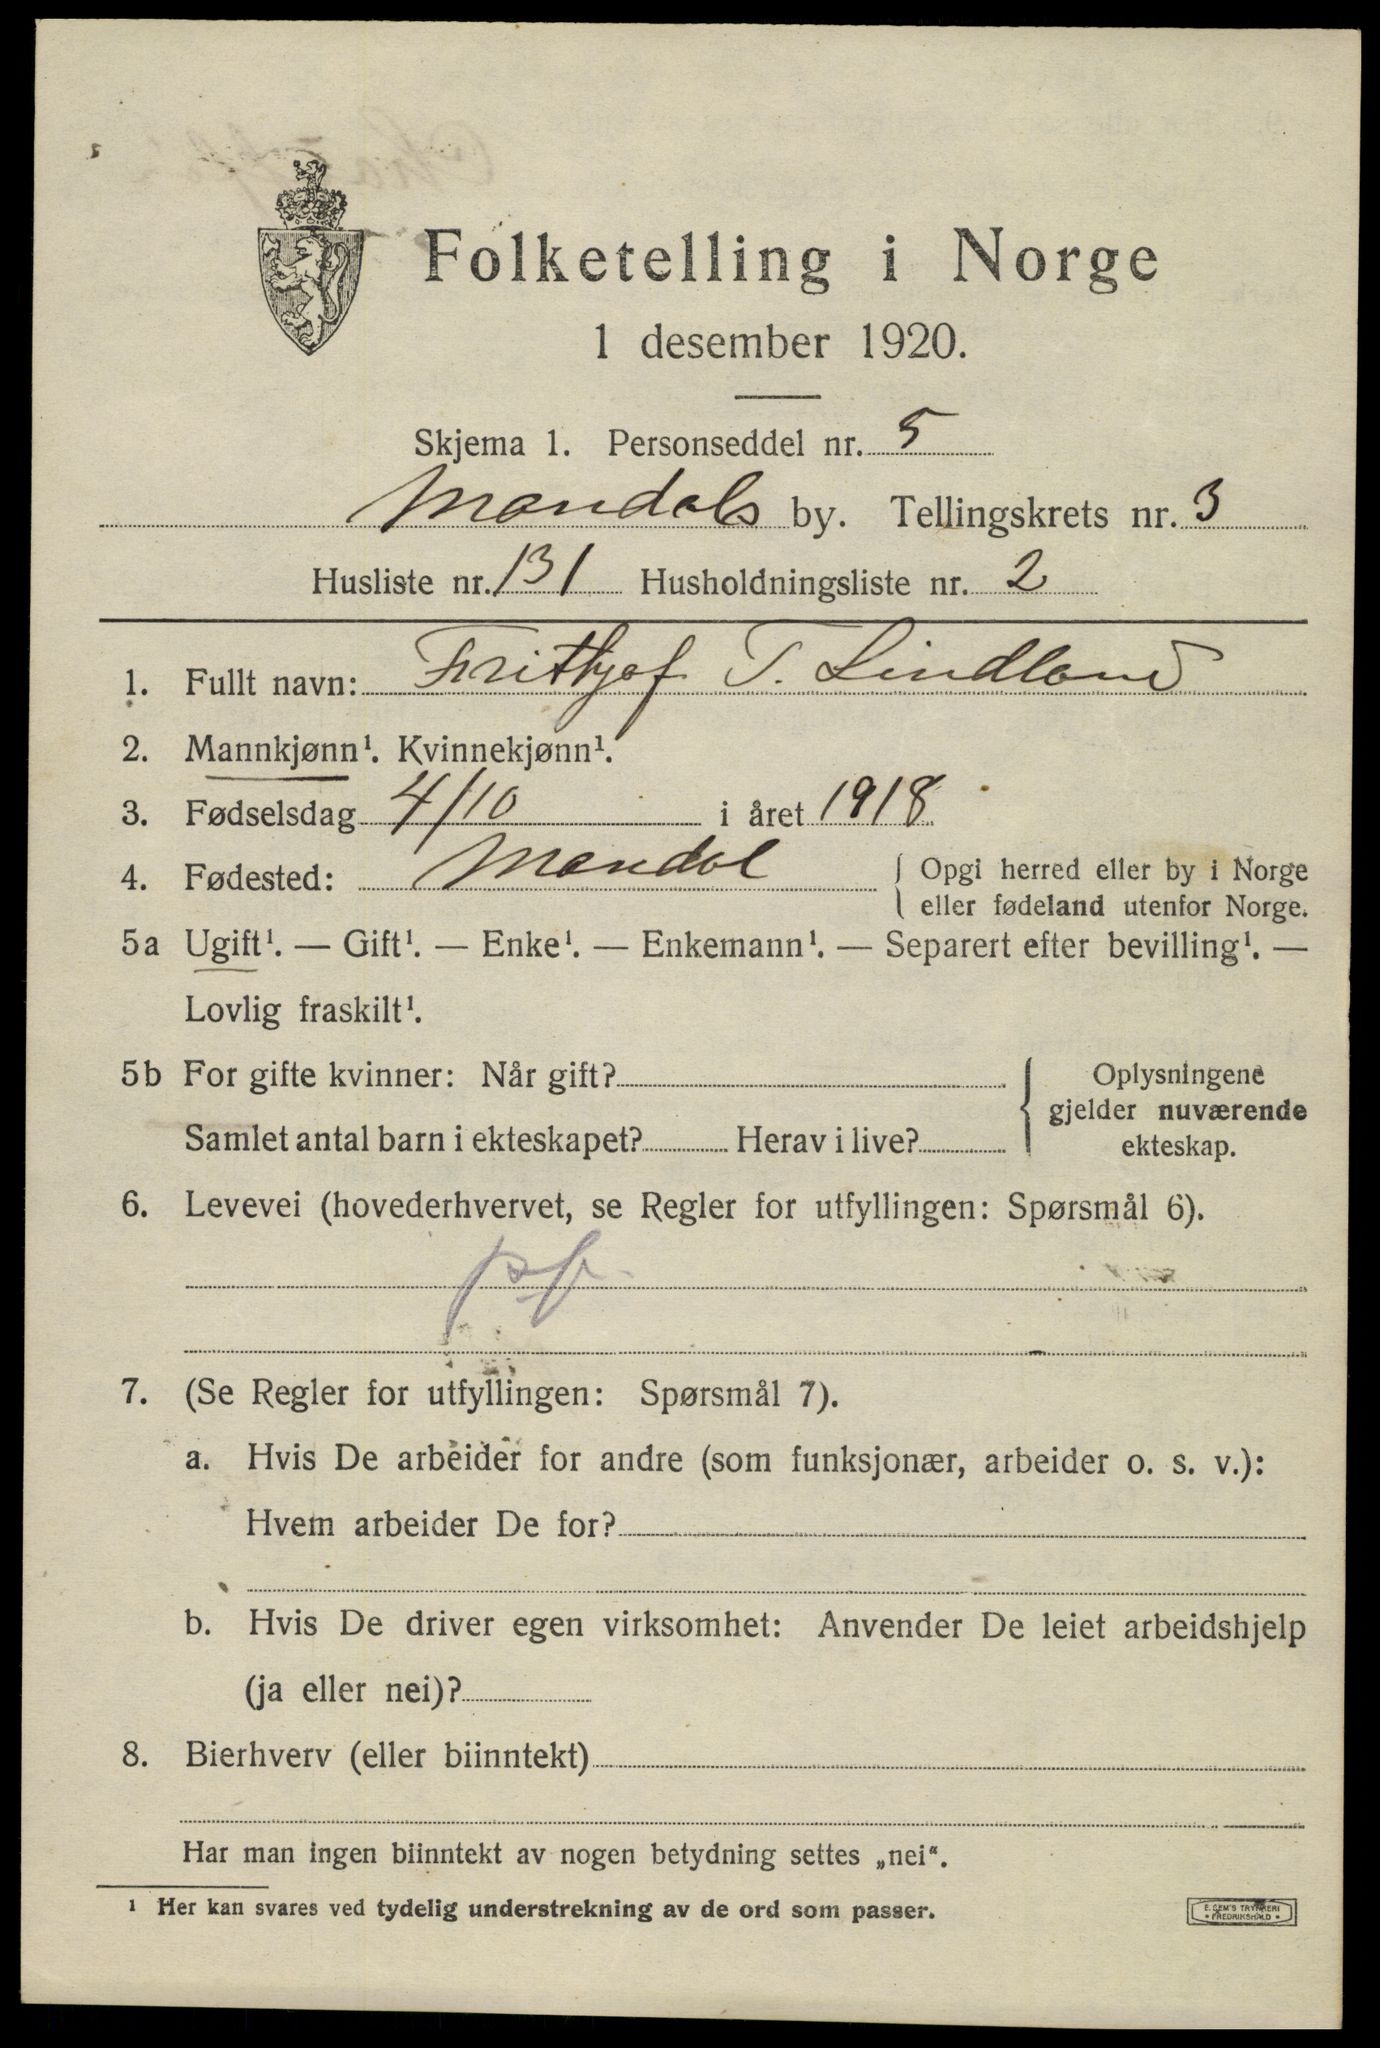 Folketelling i Norge
1 desember 1920.
Skjema 1. Personseddel nr. 5
Mandals by. Tellingskrets nr. 3
Husliste nr. 131 Husholdningsliste nr. 2
1. Fullt navn: Frithjof T. Lindland
2. Mannkjønn¹. Kvinnekjønn¹.
3. Fødselsdag 4/10 i året 1918
4. Fødested: Mandal { Opgi herred eller by i Norge
eller fødeland utenfor Norge.
5a Ugift¹. — Gift¹. — Enke¹. — Enkemann¹. — Separert efter bevilling¹. —
Lovlig fraskilt¹.
5b For gifte kvinner: Når gift? { Oplysningene
gjelder nuværende
Samlet antal barn i ekteskapet? Herav i live? ekteskap.
6. Levevei (hovederhvervet, se Regler for utfyllingen: Spørsmål 6).
7. (Se Regler for utfyllingen: Spørsmål 7).
a. Hvis De arbeider for andre (som funksjonær, arbeider o. s. v.):
Hvem arbeider De for?
b. Hvis De driver egen virksomhet: Anvender De leiet arbeidshjelp
(ja eller nei)?
8. Bierhverv (eller biinntekt)
Har man ingen biinntekt av nogen betydning settes „nei“.
¹ Her kan svares ved tydelig understrekning av de ord som passer.
E. SEM'S TRYKKERI
• FREDRIKSHALD •